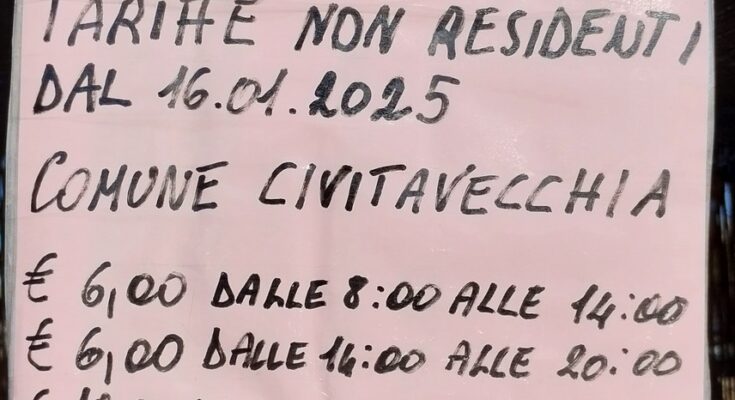 TARIFFE NON RESIDENTI
DAL 16.01.2025
COMUNE CIVITAVECCHIA
€ 6,00 DALLE 8:00 ALLE 14:00
€ 6,00 DALLE 14:00 ALLE 20:00